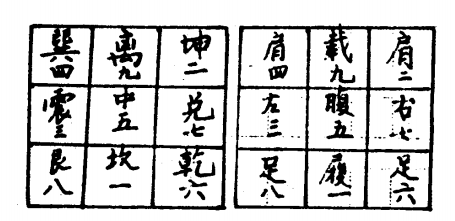 巽四 離九 坤二 肩四 戴九 肩二
震三 中五 兌七 左三 腹五 右七
艮八 坎一 乾六 足八 履一 足六